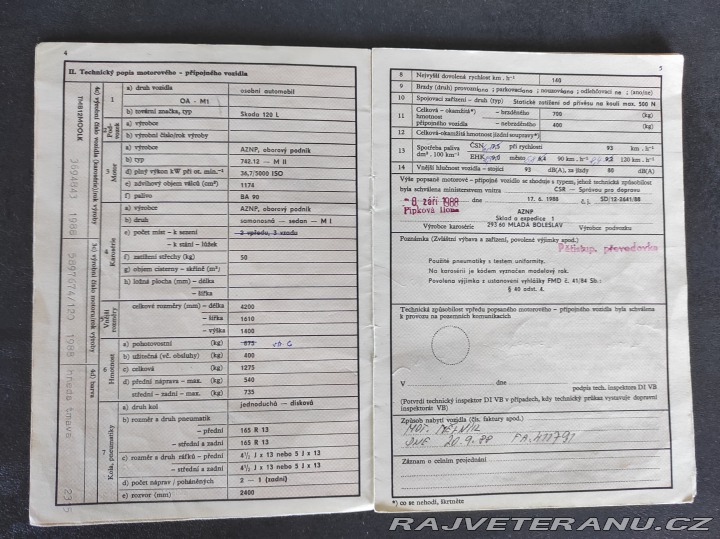 4
II. Technický popis motorového – přípojného vozidla
4c) výrobní číslo vozidla (karosérie)/rok výroby
TMB12MOOLK
3694843 1988
3c) výrobní číslo motoru/rok výroby
5897074/120 1988
4d) barva
hněda tmavá
1
a) druh vozidla
osobní automobil
OA - M1
b) tovární značka, typ
Škoda 120 L
2 Podvozek
a) výrobce
b) výrobní číslo/rok výroby
3 Motor
a) výrobce
AZNP, oborový podnik
b) typ
742.12 — M II
d) plný výkon kW při ot. min.⁻¹
36,7/5000 ISO
e) zdvihový objem válců (cm³)
1174
f) palivo
BA 90
4 Karosérie
a) výrobce
AZNP, oborový podnik
b) druh
samonosná — sedan — M I
e) počet míst – k sezení
2 vpředu, 3 vzadu
– k stání - lůžek
f) zatížení střechy (kg)
50
g) objem cisterny – skříně (m³)
h) ložná plocha (mm) – délka
– šířka
5 Vnější rozměry
celkové rozměry (mm) – délka
4200
– šířka
1610
– výška
1400
6 Hmotnost
a) pohotovostní (kg)
875
b) užitečná (vč. obsluhy) (kg)
400
c) celková (kg)
1275
d) přední náprava – max. (kg)
540
střední – zadní – max. (kg)
735
7 Kola, pneumatiky
a) druh kol
jednoduchá — disková
b) rozměr a druh pneumatik
– přední
165 R 13
– střední a zadní
165 R 13
c) rozměr a druh ráfků – přední
4½ J x 13 nebo 5 J x 13
– střední a zadní
4½ J x 13 nebo 5 J x 13
d) počet náprav / poháněných
2 — 1 (zadní)
e) rozvor (mm)
2400
5
8 Nejvyšší dovolená rychlost km . h⁻¹
140
9 Brzdy (druh) provozní ano ; parkovací ano ; nouzové ano ; odlehčovací ne ; (ano/ne)
10 Spojovací zařízení – druh (typ) Statické zatížení od přívěsu na kouli max. 500 N
11 Celková – okamžitá*) hmotnost přípojného vozidla
– brzděného
700 (kg)
– nebrzděného
400 (kg)
12 Celková-okamžitá hmotnost jízdní soupravy*)
(kg)
13 Spotřeba paliva dm³ . 100 km⁻¹
ČSN při rychlosti 93 km . h⁻¹
EHK měno 90 km . h⁻¹ 120 km . h⁻¹
14 Vnější hlučnost vozidla – stojící 93 dB(A), za jízdy 80 dB(A)
Výše popsané motorové – přípojné vozidlo se shoduje s typem, jehož technická způsobilost
byla schválena ministerstvem vnitra ČSR — Správou pro dopravu
dne 17. 6. 1988 č. j. SD/12-2641/88
- 8. září 1988
Pipková Ilona
AZNP
Sklad a expedice 1
293 60 MLADÁ BOLESLAV
Výrobce karosérie
Výrobce podvozku
Poznámka (Zvláštní výbava a zařízení, povolené výjimky apod.)
Pětistup. převodovka
Použité pneumatiky s testem uniformity.
Na karosérii je kódem vyznačen modelový rok.
Povolena výjimka z ustanovení vyhlášky FMD č. 41/84 Sb.:
§ 40 odst. 4.
Technická způsobilost vpředu popsaného motorového – přípojného vozidla byla schválena
k provozu na pozemních komunikacích
V dne
podpis tech. inspektora DI VB
(Potvrdí technický inspektor DI VB v případech, kdy technický průkaz vystavuje dopravní
inspektorát VB)
Způsob nabytí vozidla (čís. faktury apod.)
MOT. MĚLNÍK
DNE 20.9.88 FA.411791
Záznam o celním projednání
*) co se nehodí, škrtněte
RAJVETERANU.CZ